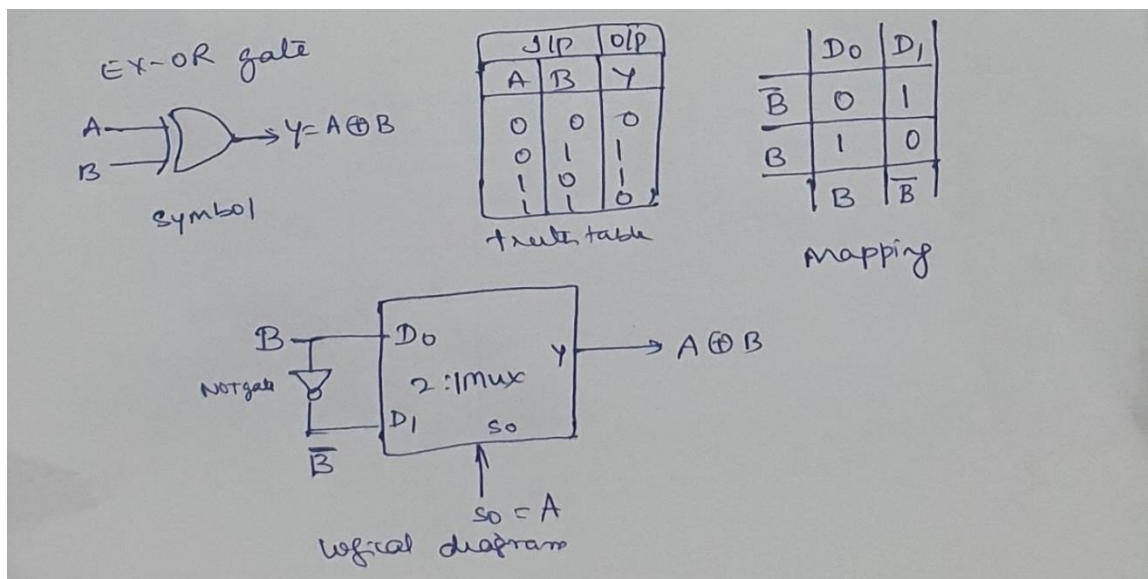 EX-OR gate
A
B
Y = A ⊕ B
Symbol
I/P O/P
A B Y
0 0 0
0 1 1
1 0 1
1 1 0
truth table
D0 D1
B̅ 0 1
B 1 0
B B̅
Mapping
B
NOT gate
B̅
D0
2:1 mux
D1
S0
Y
A ⊕ B
S0 = A
Logical diagram